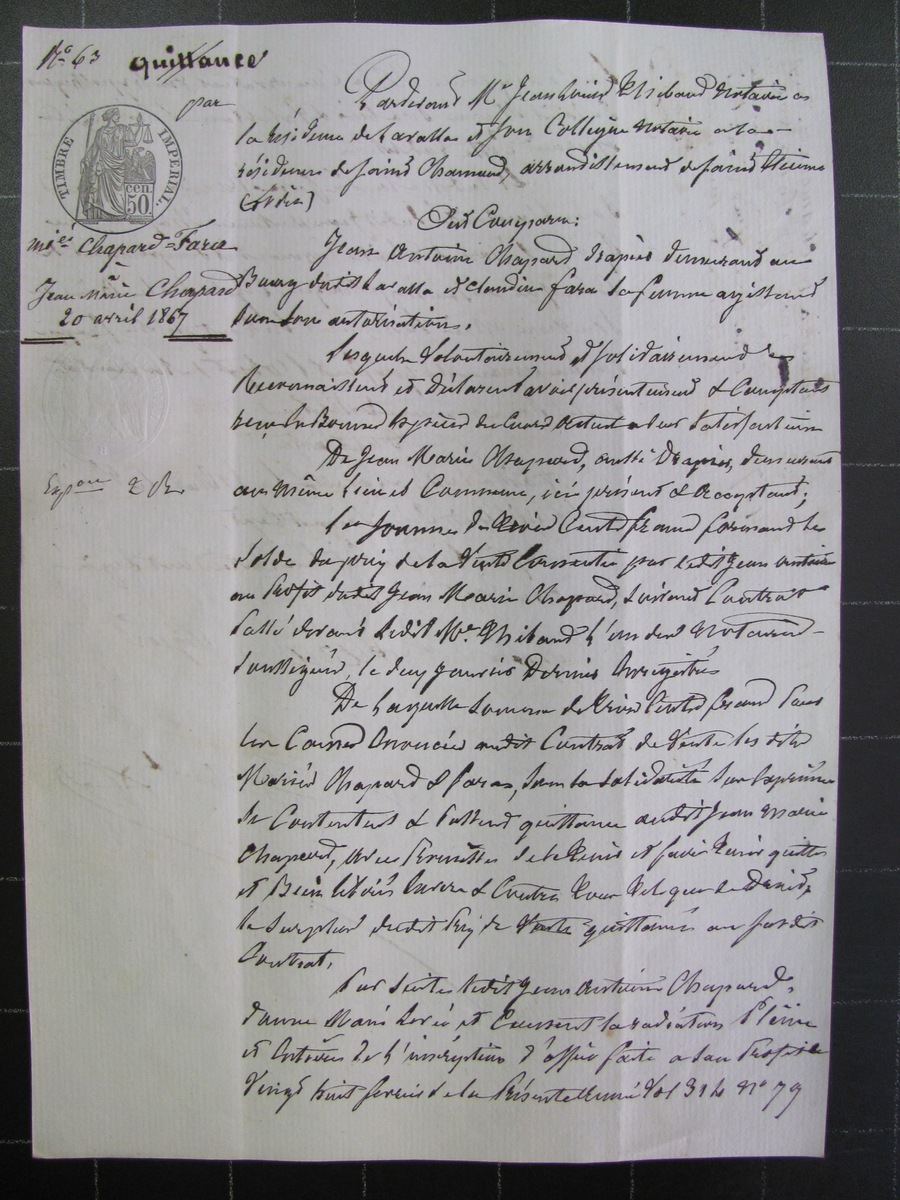 N° 63 quittance
par
TIMBRE IMPERIAL.
50 cen
mi és Chapard = Fara
à
Jean Marie Chapard
20 avril 1867
Exp on
Pardevant Me Jean Louis Thibaud Notaire a
la résidence de Lavalla et son Collègue Notaire a la
résidence de saint Chamond, arrondissement de saint Etienne
(Loire)
Ont Comparu:
Jean Antoine Chapard Drapier demeurant au
Bourg dudit Lavalla et claudine fara sa femme agissant
sous son autorisation.
Lesquels Volontairement et solidairement
Reconnaissent et Déclarent avoir présentement & Comptant
reçu en Bonnes Espèces de Cours Actuel a leur Satisfaction
De Jean Marie Chapard, aussi Drapier, demeurant
aux même lieu et Commune, ici présent & acceptant;
La Somme de Cents francs formant le
solde du prix de la Vente Consentie par ledit Jean antoine
au Profit dudit Jean Marie Chapard, suivant Contrat
Passé devant Ledit Me Thibaud l'un des Notaires
soussignés, le dix janvier Dernier Enregistré
De Laquelle Somme de Cents francs Pour
les Causes Enoncées audit Contrat de Vente les dits
Mariés Chapard & Fara, sous la solidarité sus exprimée
se Contentent & Passent quittance audit Jean Marie
Chapard, avec Promesse de le tenir et faire tenir quitte
et Bien libéré Envers & Contre Tous
le surplus dudit Prix de Vente quittancé au susdit
Contrat.
Par suite ledit Jean Antoine Chapard
donne Main Levée et Consent la radiation Pleine
et Entière de l'inscription d'office faite a son Profit le
Vingt huit janvier de la Présente Année Vol 314 N° 79